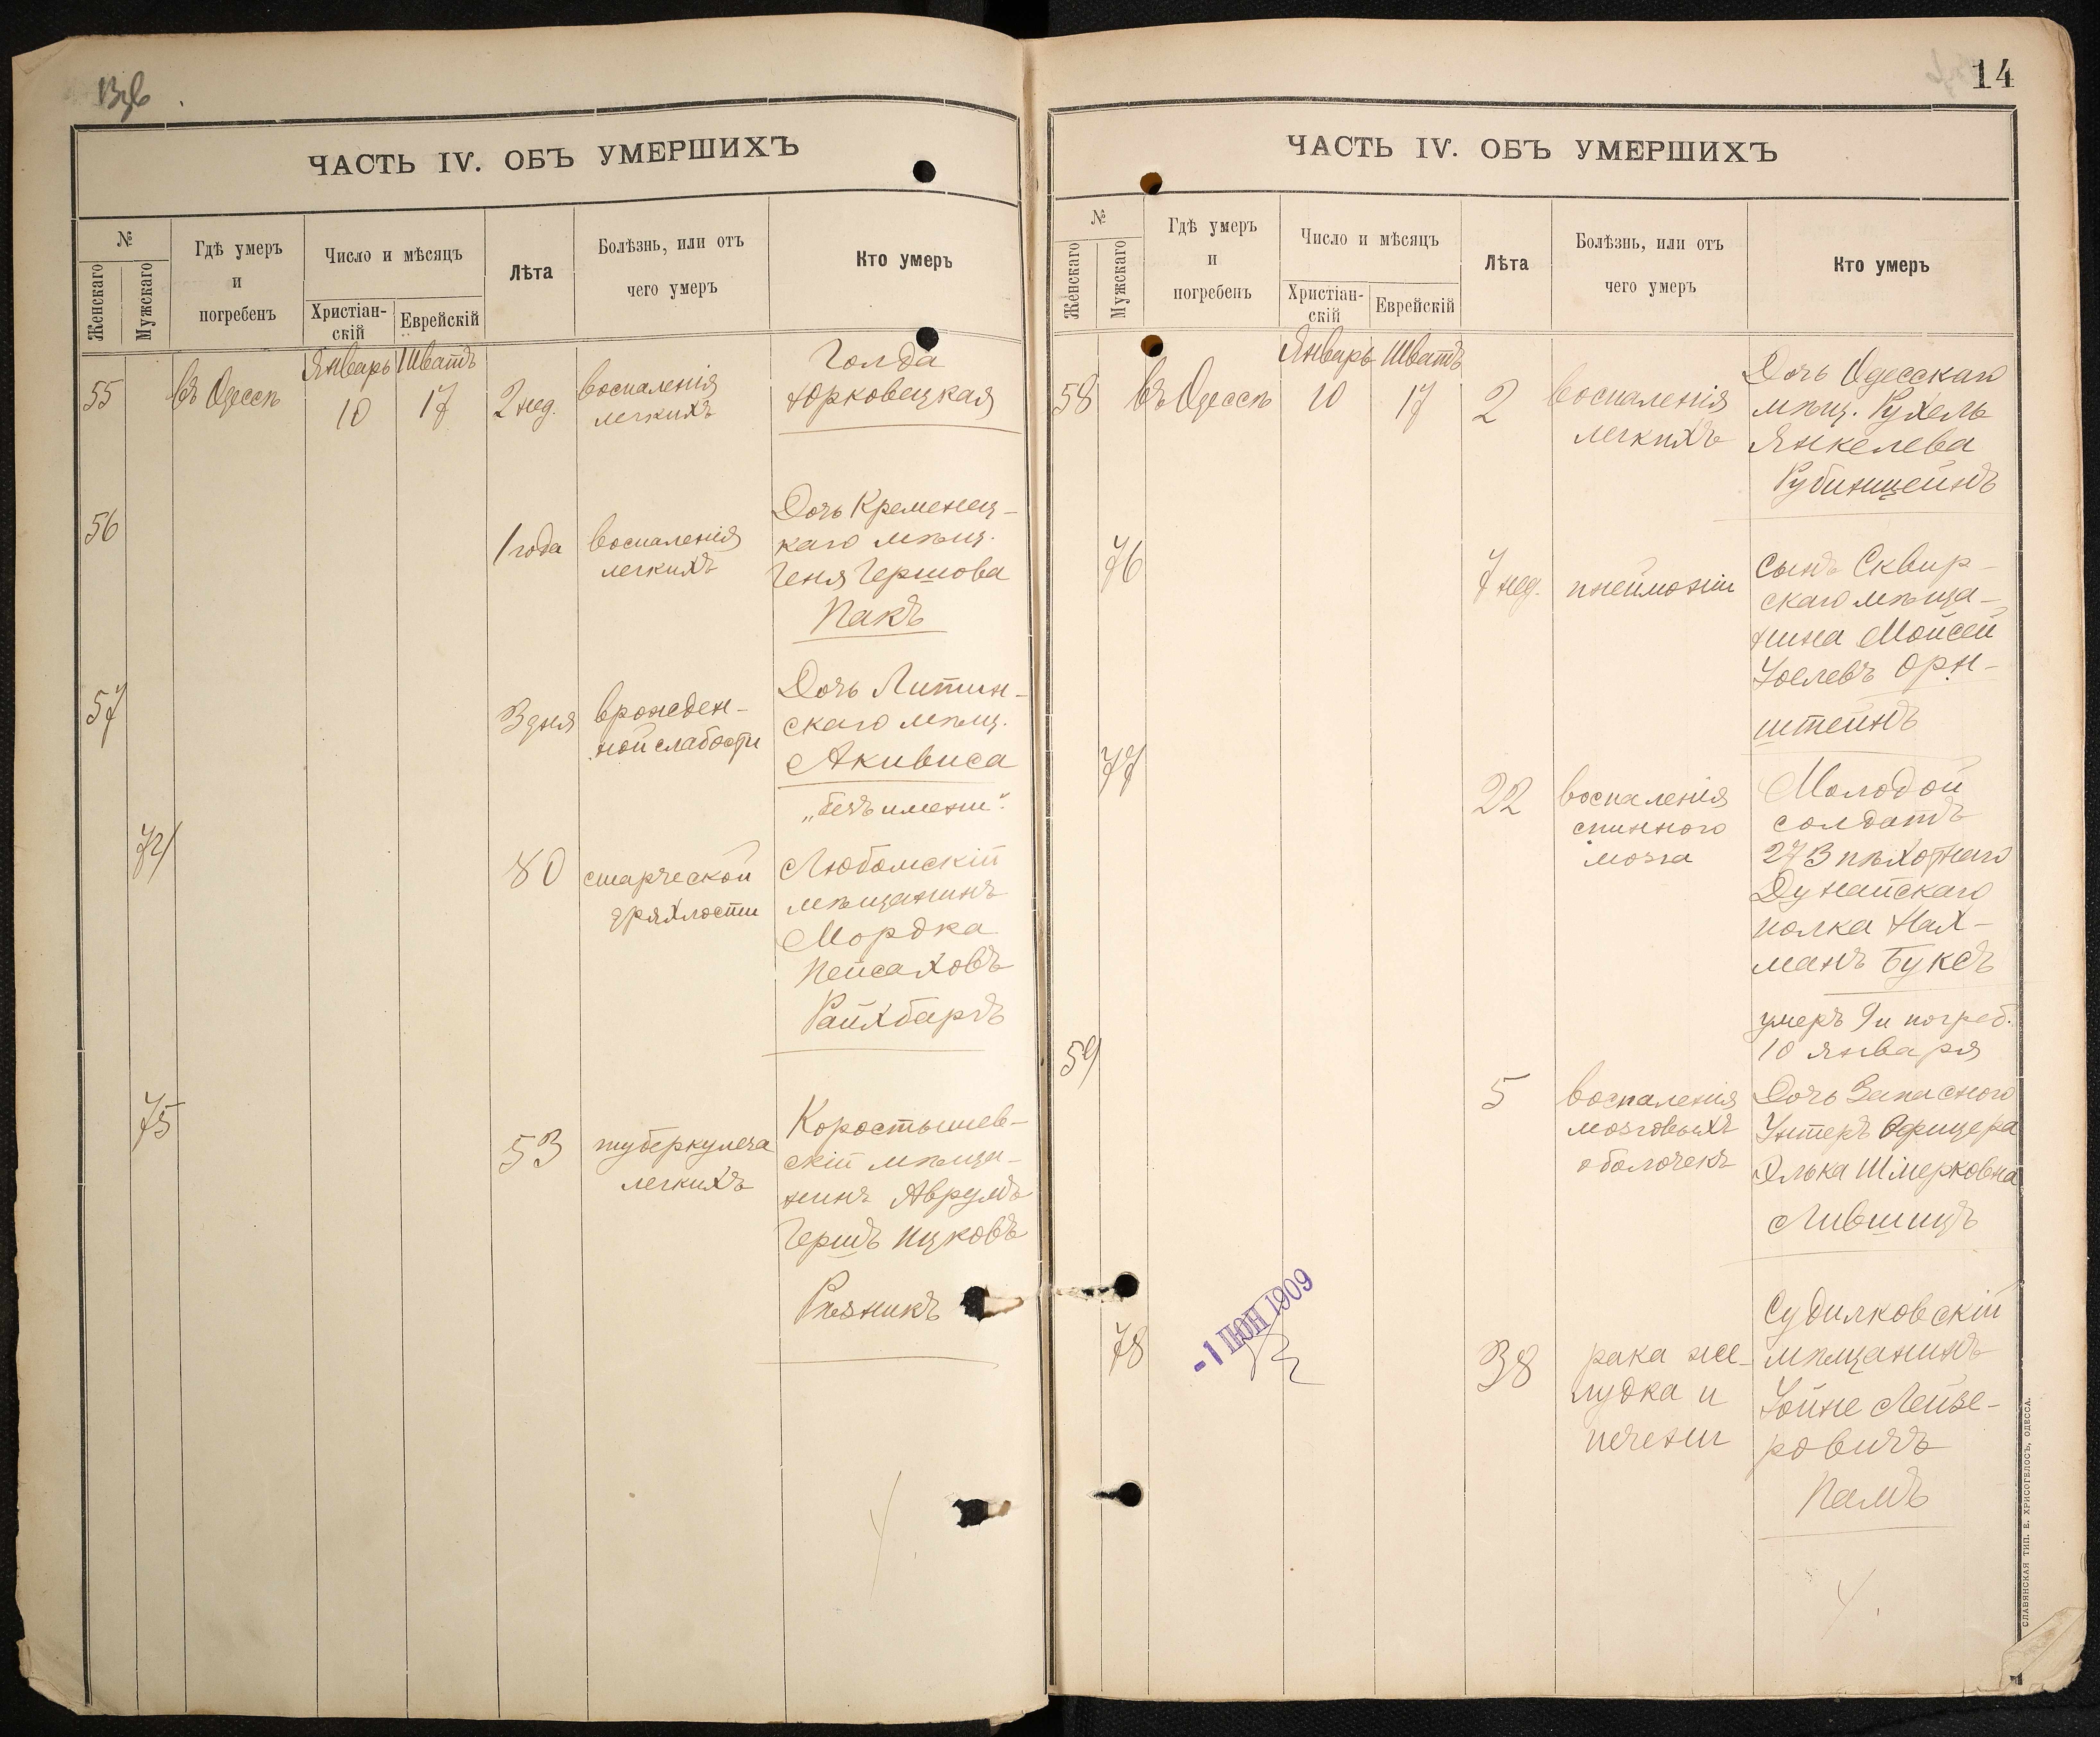 ЧАСТЬ IV. ОБЪ УМЕРШИХЪ
№
Женскаго
Мужскаго
Гдѣ умеръ
и
погребенъ
Число и мѣсяцъ
Христіан-
скій
Еврейскій
Лѣта
Болѣзнь, или отъ
чего умеръ
Кто умеръ
Январь Шватъ
55 въ Одессѣ 10 17 2 нед.
воспаленія
легкихъ
Голда
Юрковецкая
56
1 года
воспаленія
легкихъ
Дочь Кременец-
каго мѣщ.
Геня Гершова
Пакъ
57
3 дня
врожден-
ной слабости
Дочь Литин-
скаго мѣщ.
Акивиса
„безъ имени".
74
80
старческой
дряхлости
Любомскій
мѣщанинъ
Мордка
Пейсаховъ
Райхбардъ
75
53
туберкулеза
легкихъ
Коростышев-
скій мѣща-
нинъ Аврумъ
Гершъ Ицковъ
Рѣзникъ
14
ЧАСТЬ IV. ОБЪ УМЕРШИХЪ
№
Женскаго
Мужскаго
Гдѣ умеръ
и
погребенъ
Число и мѣсяцъ
Христіан-
скій
Еврейскій
Лѣта
Болѣзнь, или отъ
чего умеръ
Кто умеръ
Январь Шватъ
58 въ Одессѣ 10 17 2
воспаленія
легкихъ
Дочь Одесскаго
мѣщ. Рухель
Янкелева
Рубинщейнъ
76
7 нед.
пнеймоніи
Сынъ Сквир-
скаго мѣща-
нина Мойсей
Іоелевъ Орн-
штейнъ
77
22
воспаленія
спинного
мозга
Молодой
солдатъ
273 пѣхотнаго
Дунайскаго
полка Нах-
манъ Буксъ
умеръ 9 и погреб.
10 января
59
5
воспаленія
мозговыхъ
оболочекъ
Дочь Запасного
Унтеръ Офицера
Элька Шмерковна
Лившицъ
- 1 ІЮН 1909
78
38
рака же-
лудка и
печени
Судилковскій
мѣщанинъ
Іойне Лейзе-
ровичъ
Палъ
СЛАВЯНСКАЯ ТИП. Е. ХРИСОГЕЛОСЪ, ОДЕССА.